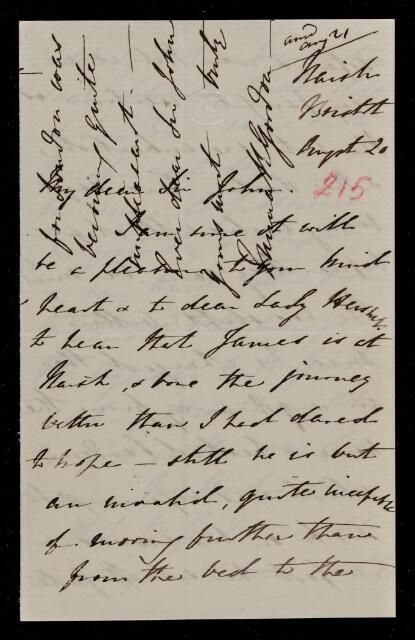 ansd
Aug 21
Naish
Bristol
Augst 20
215
My dear Sir John.
I am sure it will
be a pleasure to your kind
heart & to dear Lady Herschel
to hear that James is at
Naish, & bore the journey
better than I had dared
to hope — still he is but
an invalid, quite incapable
of moving further than
from the bed to the
for London was
becoming quite
unpleasant.
Ever dear Sir John
yours most truly
Gordon